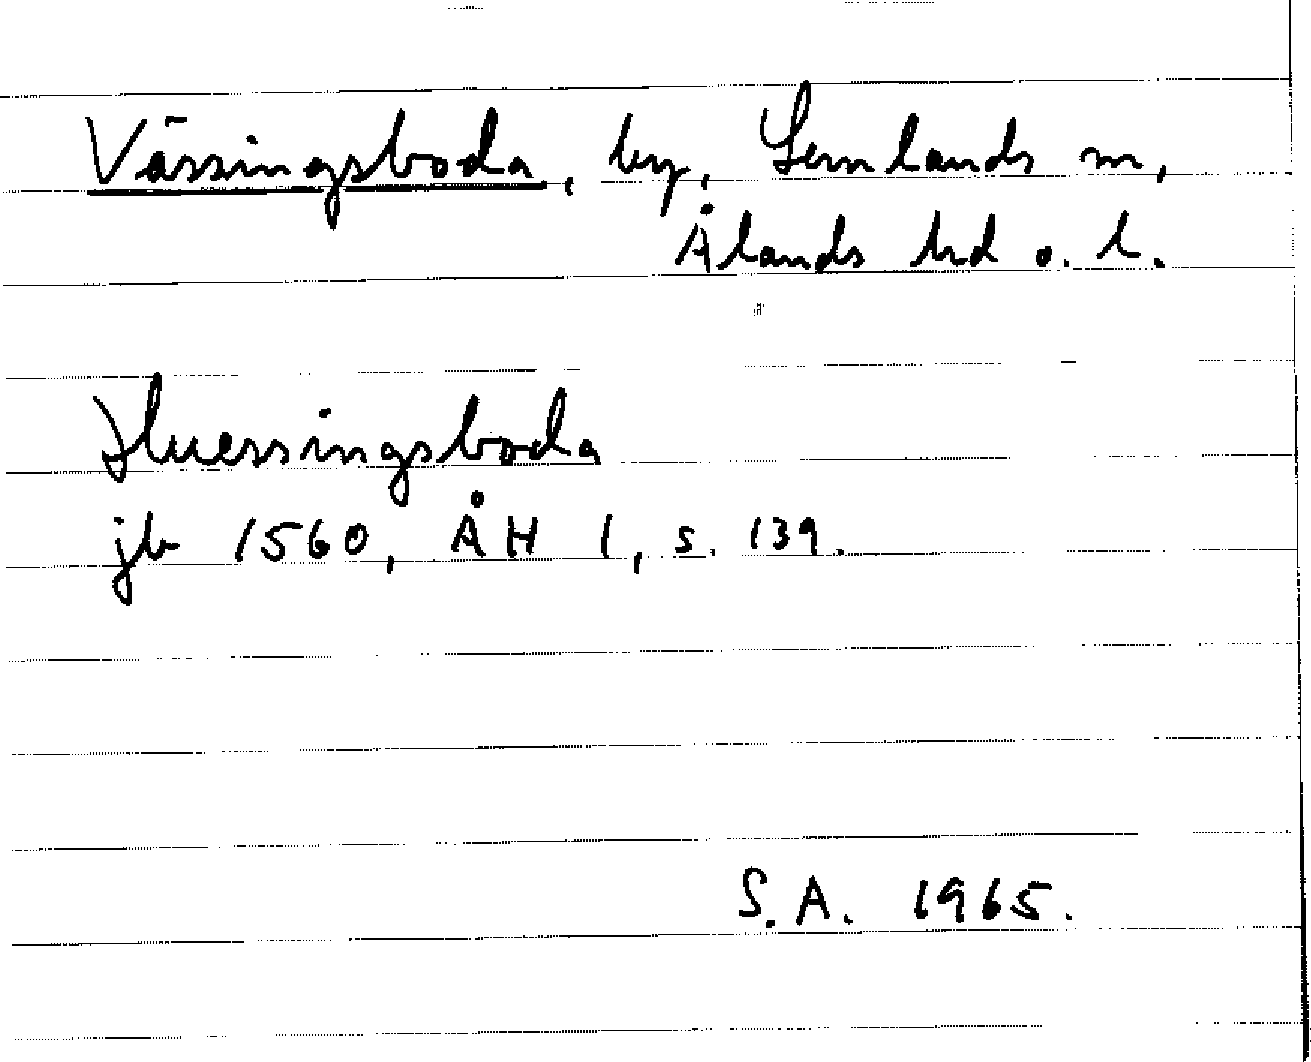 Vässingsboda, by, Lemlands sn,
Ålands hd o. l.
Huessingsboda
jb 1560, ÅH 1, s. 139.
S.A. 1965.